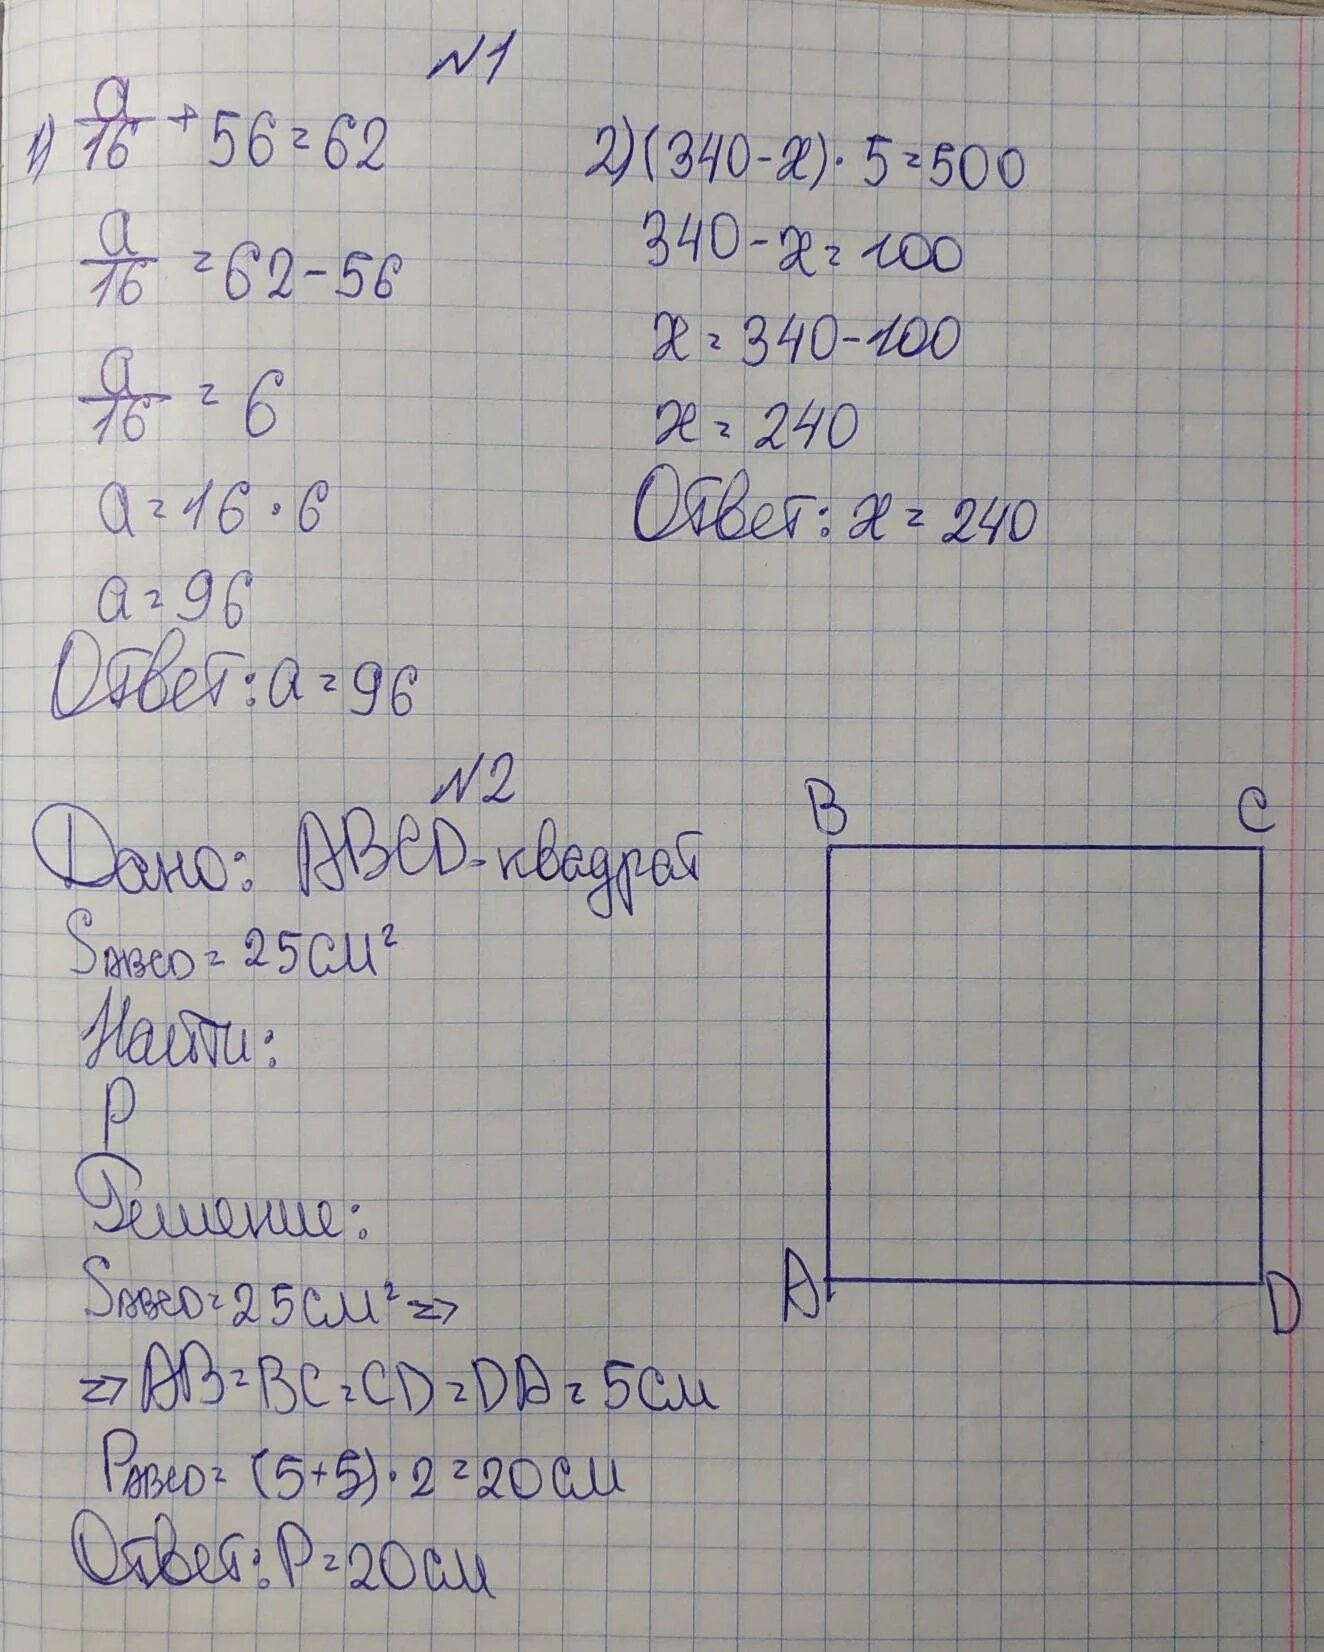 №1
1) a/16 + 56 = 62
a/16 = 62 - 56
a/16 = 6
a = 16 · 6
a = 96
Ответ: a = 96
2) (340 - x) · 5 = 500
340 - x = 100
x = 340 - 100
x = 240
Ответ: x = 240
№2
Дано: ABCD - квадрат
S ABCD = 25 см²
Найти:
P
Решение:
S ABCD = 25 см² =>
=> AB = BC = CD = DA = 5 см
P ABCD = (5+5) · 2 = 20 см
Ответ: P = 20 см
B C
A D